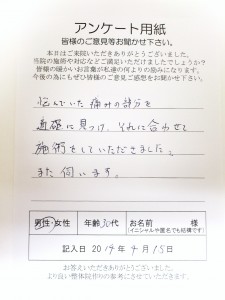 アンケート用紙
皆様のご意見等お聞かせ下さい。
本日はご来院いただきありがとうございました。
当院の施術や対応などご満足いただけましたでしょうか?
皆様の暖かいお言葉が私達の何よりの励みになります。
今後の為にもぜひ皆様のご意見ご感想をお聞かせ下さい。
悩んでいた痛みの部分を
適確に見つけ、それに合わせて
施術をしていただきました。
また伺います。
男性・女性 年齢30代 お名前 様
(イニシャルや匿名でも結構です)
記入日 2014年4月15日
お答えいただきありがとうございました。
より良い整体院作りの参考にさせていただきます。